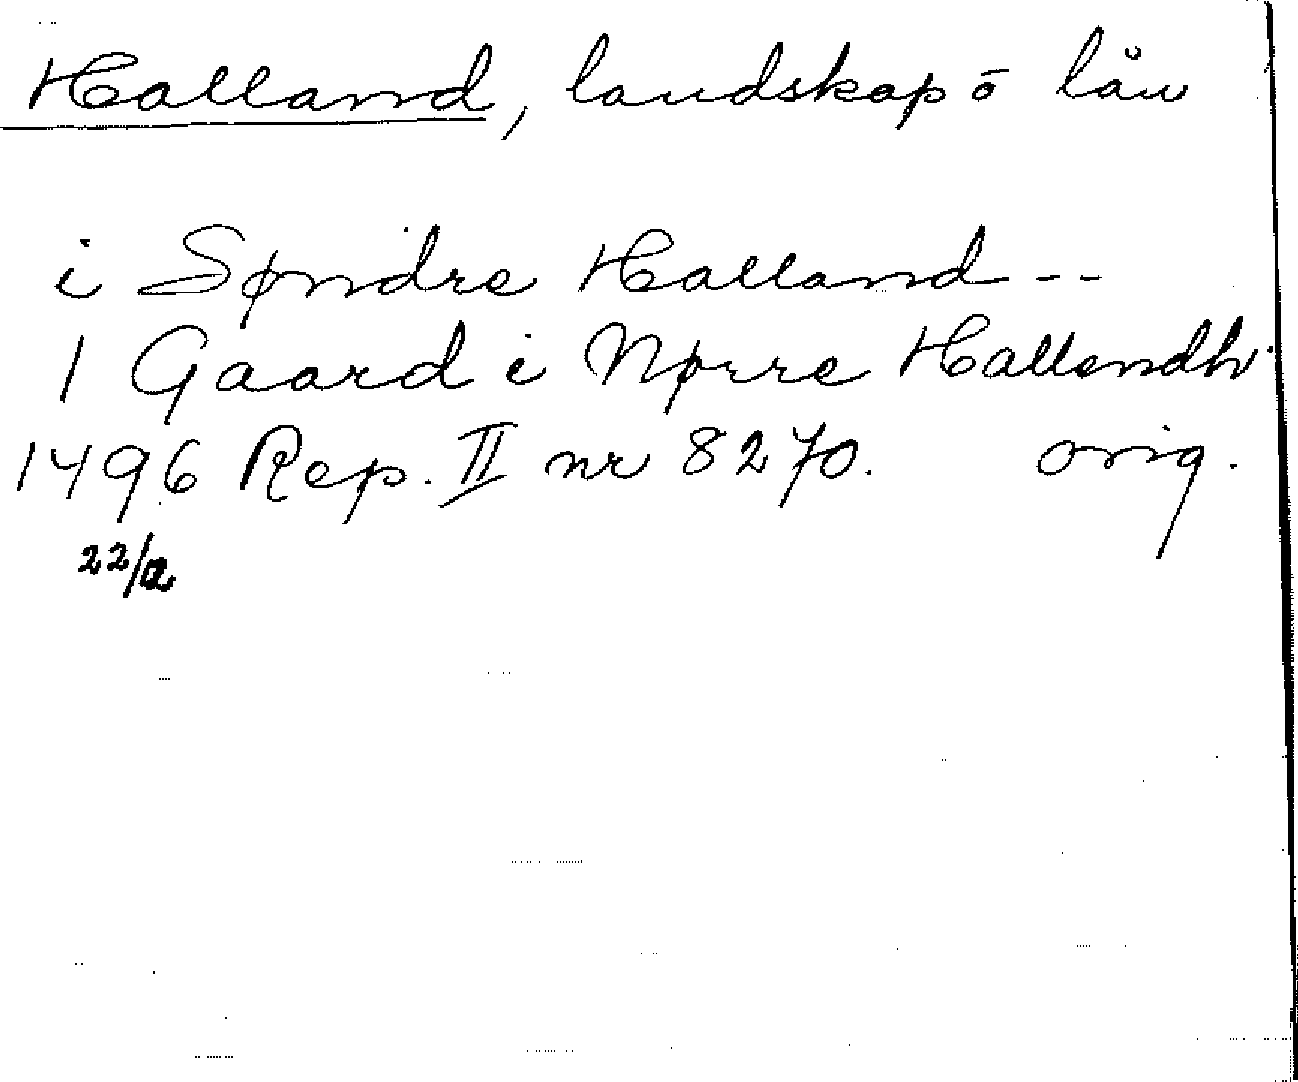 Halland, landskap o län
i Søndre Halland --
1 Gaard i Nørre Hallandh
1496 Rep. II nr 8270. orig.
22/12